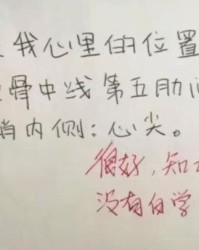 我心里的位置
骨中线第五肋
内侧：心尖。
很好，知
没有白学